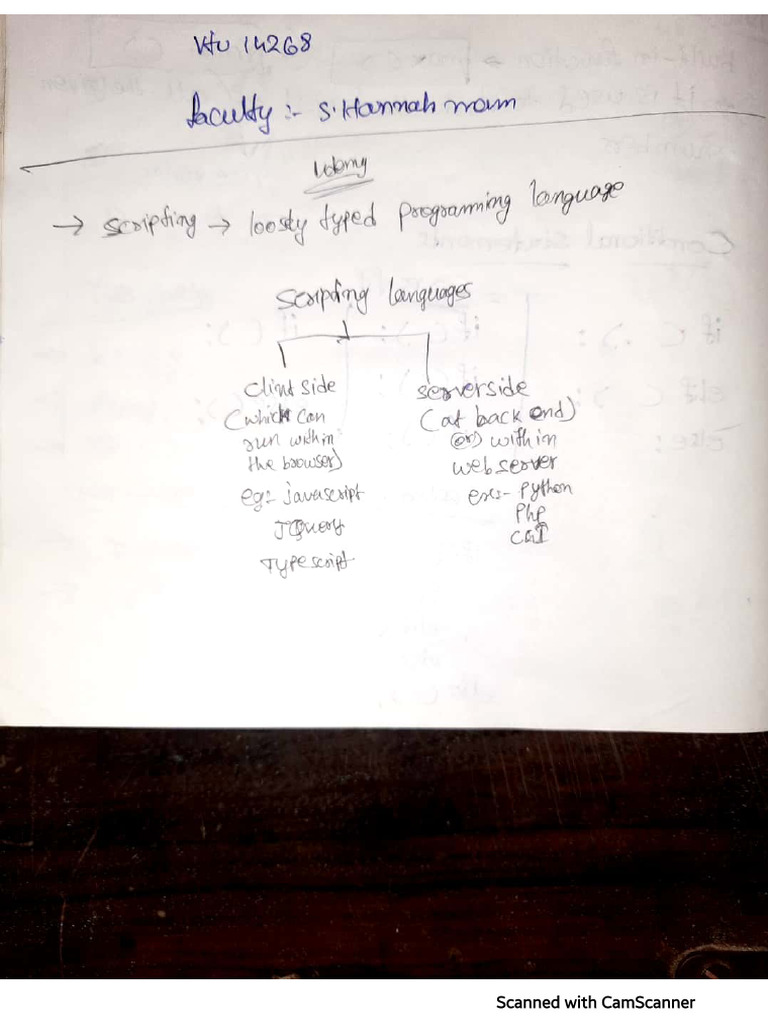 Vtu 14268
faculty :- S. Hannah mam
Udemy
→ scripting → loosly typed programming language
scripting languages
Clint side
(which can
run within
the browser)
eg:- javascript
JQuery
Typescript
serverside
(at back end)
(or) within
webserver
exs:- Python
Php
CGI
Scanned with CamScanner